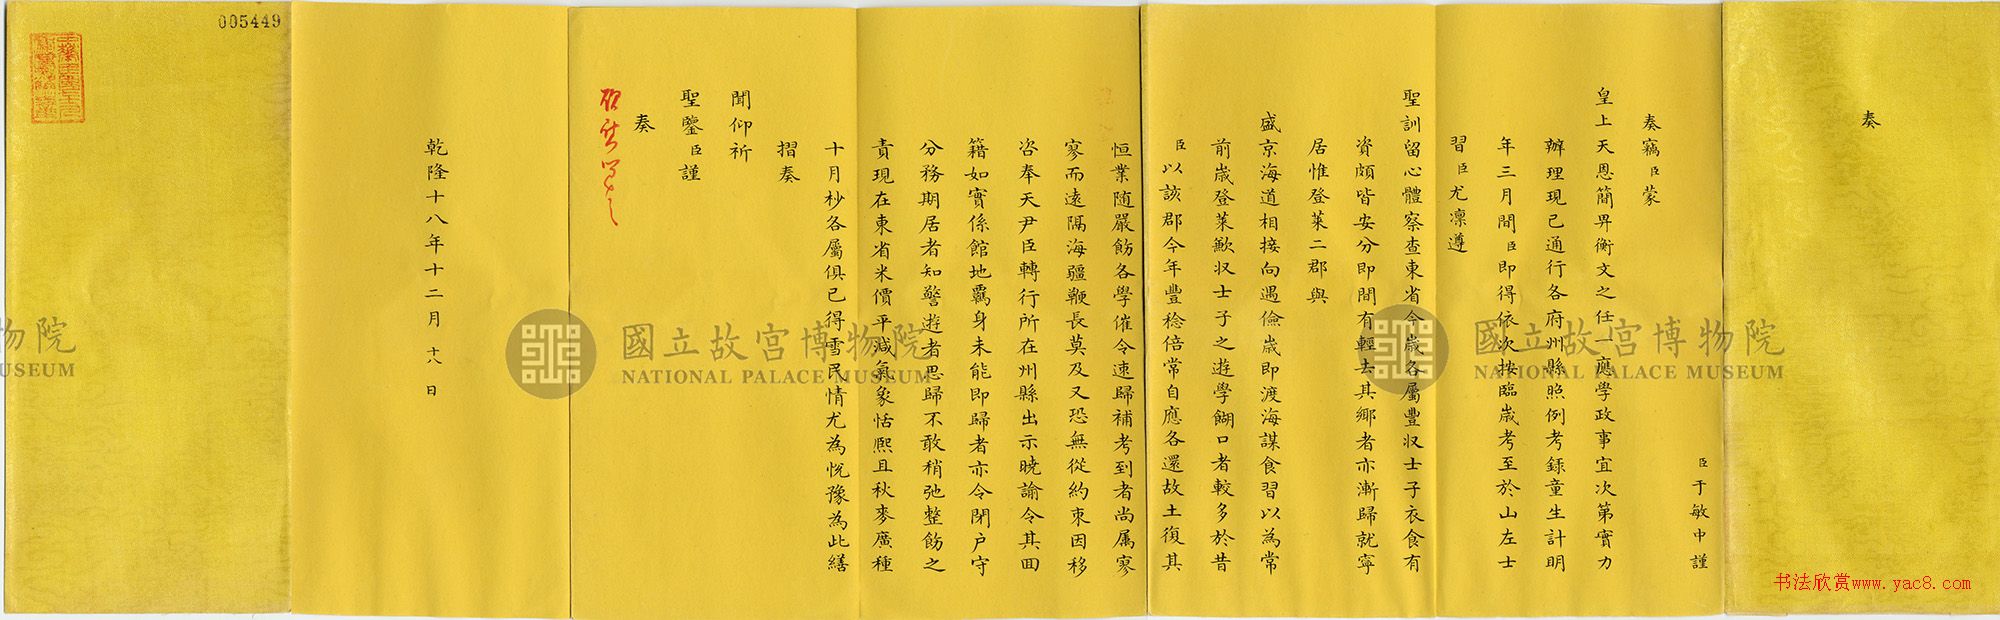 奏
臣于敏中謹
奏竊臣蒙
皇上天恩簡畀衡文之任一應學政事宜次第實力
辦理現已通行各府州縣照例考錄童生計明
年三月間臣即得依次按臨歲考至於山左士
習臣尤凛遵
聖訓留心體察查東省今歲各屬豐収士子衣食有
資頗皆安分即間有輕去其鄉者亦漸歸就寧
居惟登萊二郡與
盛京海道相接向遇儉歲即渡海謀食習以為常
前歲登萊歉収士子之遊學餬口者較多於昔
臣以該郡今年豐稔倍常自應各還故土復其
恒業随嚴飭各學催令速歸補考到者尚属寥
寥而遠隔海疆鞭長莫及又恐無從約束因移
咨奉天尹臣轉行所在州縣出示曉諭令其回
籍如實係館地羈身未能即歸者亦令閉户守
分務期居者知警遊者思歸不敢稍弛整飭之
責現在東省米價平減氣象恬熙且秋麥廣種
十月杪各屬俱已得雪民情尤為悅豫為此繕
摺奏
聞仰祈
聖鑒臣謹
奏
乾隆十八年十二月十八日
005449
國立故宮博物院
NATIONAL PALACE MUSEUM
國立故宮博物院
NATIONAL PALACE MUSEUM
物院
USEUM
书法欣赏www.yac8.com